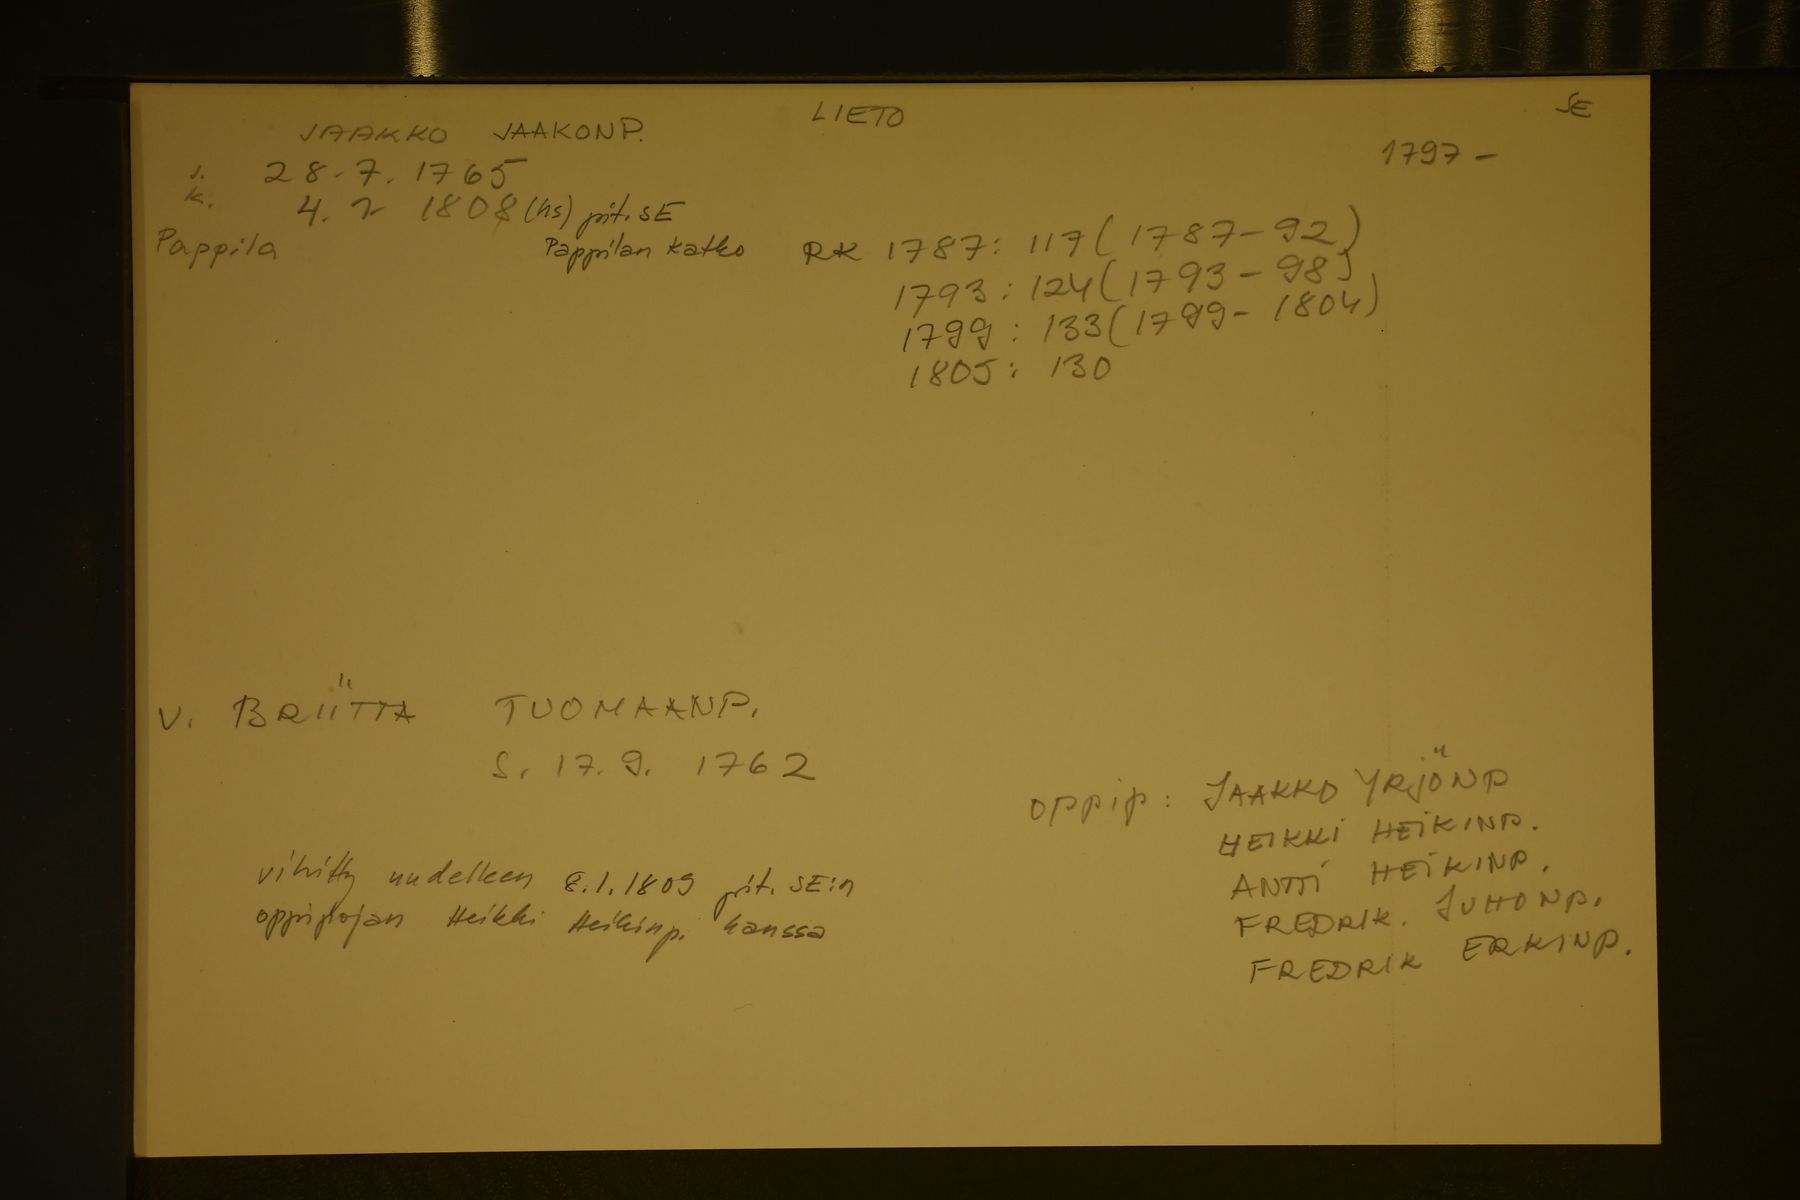 LIETO
SE
JAAKKO JAAKONP.
1797 -
s. 28.7.1765
k. 4.2 1808 (hs) pit. SE
Pappila Pappilan Katko RK 1787: 117 (1787-92)
1793: 124 (1793-98)
1799: 133 (1799-1804)
1805: 130
V. BRIITTA TUOMAANP.
S. 17.9. 1762
oppip: JAAKKO YRJÖNP
HEIKKI HEIKINP.
ANTTI HEIKINP.
FREDRIK. JUHONP.
FREDRIK ERKINP.
vihitty uudelleen 8.1.1809 pit. SE:n
oppipojan Heikki Heikinp. kanssa